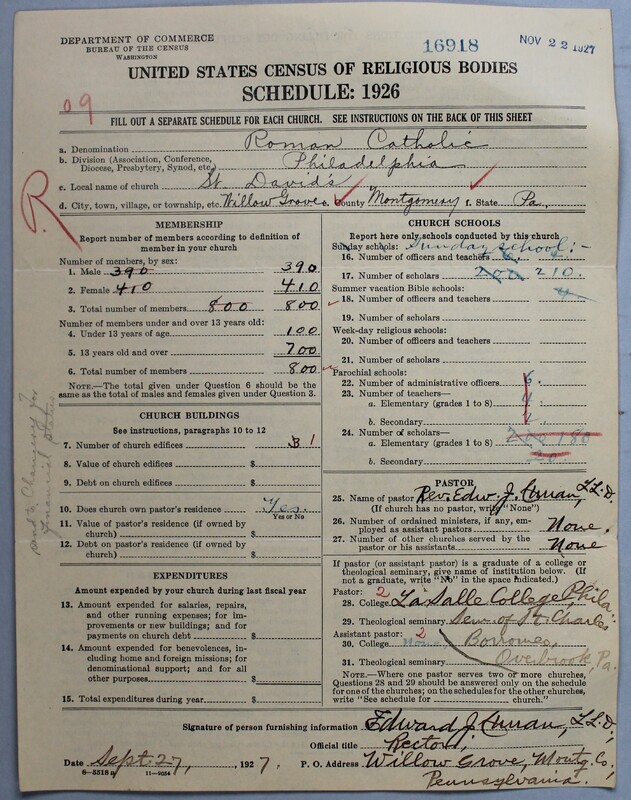 DEPARTMENT OF COMMERCE
BUREAU OF THE CENSUS
WASHINGTON
16918
NOV 22 1927
UNITED STATES CENSUS OF RELIGIOUS BODIES
SCHEDULE: 1926
09
FILL OUT A SEPARATE SCHEDULE FOR EACH CHURCH. SEE INSTRUCTIONS ON THE BACK OF THIS SHEET
a. Denomination Roman Catholic
b. Division (Association, Conference,
Diocese, Presbytery, Synod, etc.) Philadelphia
c. Local name of church St. David's
d. City, town, village, or township, etc. Willow Grove e. County Montgomery f. State Pa.
R
MEMBERSHIP
Report number of members according to definition of
member in your church
Number of members, by sex:
1. Male 390 390
2. Female 410 410
3. Total number of members 800 800
Number of members under and over 13 years old:
4. Under 13 years of age 100
5. 13 years old and over 700
6. Total number of members 800
NOTE.—The total given under Question 6 should be
same as the total of males and females given under Question 3.
CHURCH BUILDINGS
See instructions, paragraphs 10 to 12
7. Number of church edifices 3 1
8. Value of church edifices $
9. Debt on church edifices $
10. Does church own pastor's residence? Yes.
Yes or No
11. Value of pastor's residence (if owned by
church) $
12. Debt on pastor's residence (if owned by
church) $
EXPENDITURES
Amount expended by your church during last fiscal year
13. Amount expended for salaries, repairs,
and other running expenses; for im-
provements or new buildings; and for
payments on church debt $
14. Amount expended for benevolences, in-
cluding home and foreign missions; for
denominational support; and for all
other purposes $
15. Total expenditures during year $
CHURCH SCHOOLS
Report here only schools conducted by this church
Sunday schools: Sunday school:-
16. Number of officers and teachers
17. Number of scholars 200 210
Summer vacation Bible schools:
18. Number of officers and teachers
19. Number of scholars
Week-day religious schools:
20. Number of officers and teachers
21. Number of scholars
Parochial schools:
22. Number of administrative officers
23. Number of teachers—
a. Elementary (grades 1 to 8)
b. Secondary
24. Number of scholars—
a. Elementary (grades 1 to 8) 200 180
b. Secondary 20
PASTOR
25. Name of pastor Rev. Edw. J. LL.D.
(If church has no pastor, write "None")
26. Number of ordained ministers, if any, em-
ployed as assistant pastors None.
27. Number of other churches served by the
pastor or his assistants None
If pastor (or assistant pastor) is a graduate of a college or
theological seminary, give name of institution below. (If
not a graduate, write "No" in the space indicated.)
Pastor: 2
28. College La Salle College Phila.
29. Theological seminary Sem. of St. Charles
Assistant pastor: 2 Borromeo,
30. College None
Overbrook, Pa.
31. Theological seminary
NOTE.—Where one pastor serves two or more churches,
Questions 28 and 29 should be answered only on the schedule
for one of the churches; on the schedules for the other churches,
write "See schedule for church."
Signature of person furnishing information Edward J. LL.D.
Official title Rector,
Date Sept. 27, 1927. P. O. Address Willow Grove, Montg. Co.,
Pennsylvania.
8—5518a 11—9054